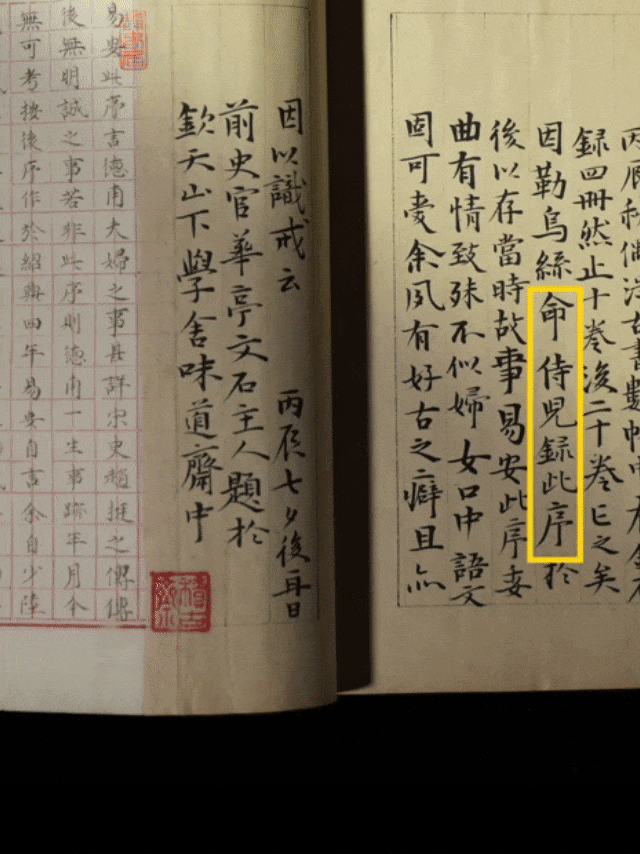 丙辰秋偶書數帙中
録四冊然止十卷後二十卷亡之矣
因勒烏絲命侍兒録此序於
後以存當時故事易安此序委
曲有情致殊不似婦女口中語文
固可愛余夙有好古之癖且亦
因以識戒云 丙辰七夕後再日
前史官華亭文石主人題於
欽天山下學舍味道齋中
易安此序言德甫夫婦之事甚詳宋史趙挺之傳傳
後無明誠之事若非此序則德甫一生事跡年月今
無可考按後序作於紹興四年易安自言余自少陸